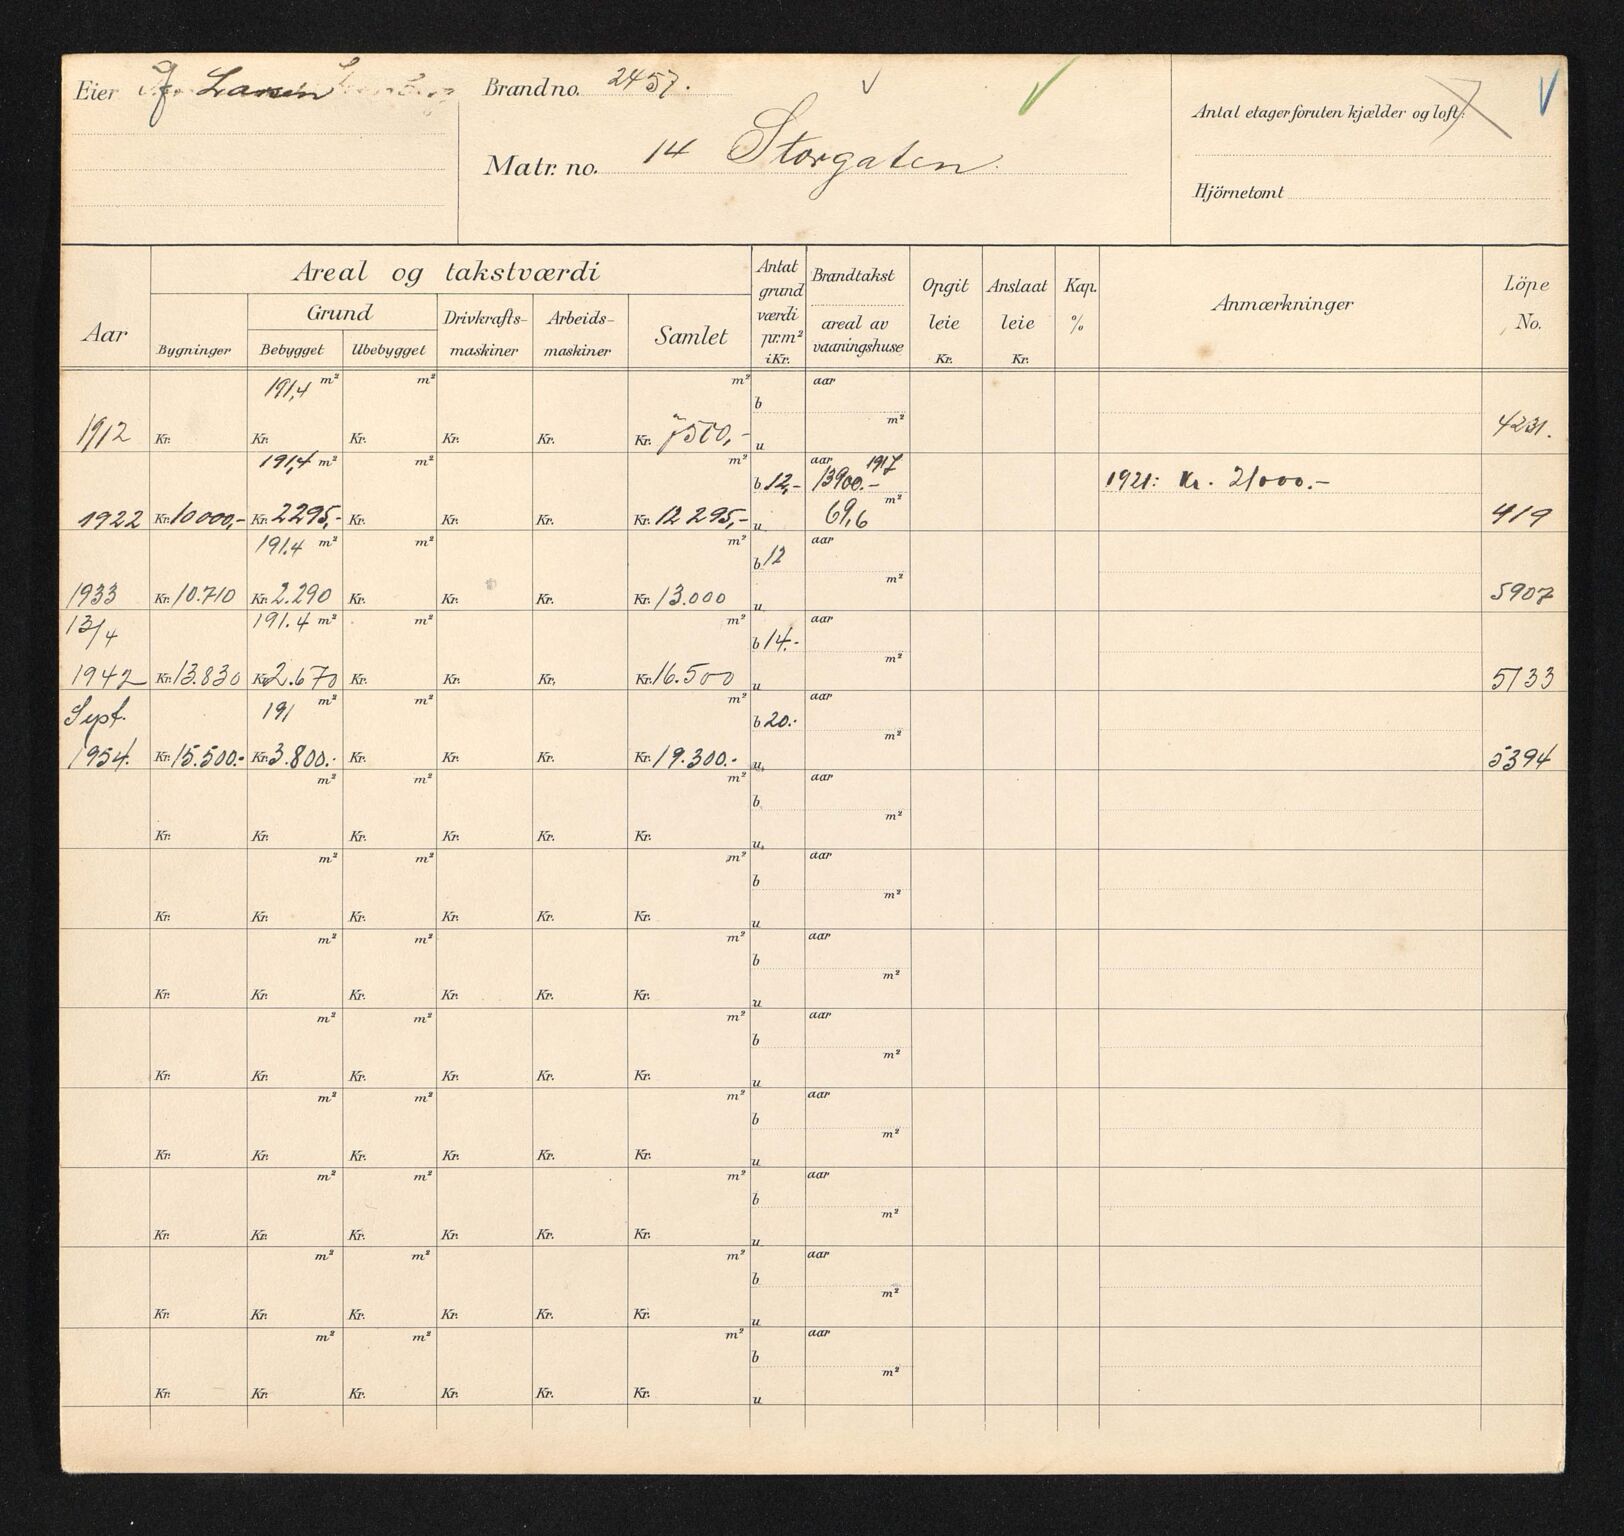 Eier J. Larsen
Brand no. 2457.
Matr. no. 14 Storgaten.
Antal etager foruten kjælder og loft:
Hjörnetomt
Aar
Areal og takstværdi
Bygninger
Grund
Bebygget
Ubebygget
Drivkrafts-
maskiner
Arbeids-
maskiner
Samlet
Antat
grund
værdi
pr.m²
i Kr.
Brandtakst
areal av
vaaningshuse
Opgit
leie
Kr.
Anslaat
leie
Kr.
Kap.
%
Anmærkninger
Löpe
No.
191,4 m² m² m² b aar
m²
1912 Kr. Kr. Kr. Kr. Kr. Kr. 7500,- u 4231.
191,4 m² m² m² b 12,- aar 1917
13900.-
1921: Kr. 21000.-
m²
1922 Kr. 10000,- Kr. 2295,- Kr. Kr. Kr. Kr. 12 295,- u 69,6 419
191.4 m² m² m² b 12 aar
m²
1933 Kr. 10.710 Kr. 2.290 Kr. Kr. Kr. Kr. 13.000 u 5907
13/4 191.4 m² m² m² b 14.- aar
m²
1942 Kr. 13.830 Kr. 2.670 Kr. Kr. Kr. Kr. 16.500 u 5133
Sept. 191 m² m² m² b 20.- aar
m²
1954. Kr. 15.500.- Kr. 3.800.- Kr. Kr. Kr. Kr. 19.300.- u 5394
m² m² m² b aar
m²
Kr. Kr. Kr. Kr. Kr. Kr. u
m² m² m² b aar
m²
Kr. Kr. Kr. Kr. Kr. Kr. u
m² m² m² b aar
m²
Kr. Kr. Kr. Kr. Kr. Kr. u
m² m² m² b aar
m²
Kr. Kr. Kr. Kr. Kr. Kr. u
m² m² m² b aar
m²
Kr. Kr. Kr. Kr. Kr. Kr. u
m² m² m² b aar
m²
Kr. Kr. Kr. Kr. Kr. Kr. u
m² m² m² b aar
m²
Kr. Kr. Kr. Kr. Kr. Kr. u
m² m² m² b aar
m²
Kr. Kr. Kr. Kr. Kr. Kr. u